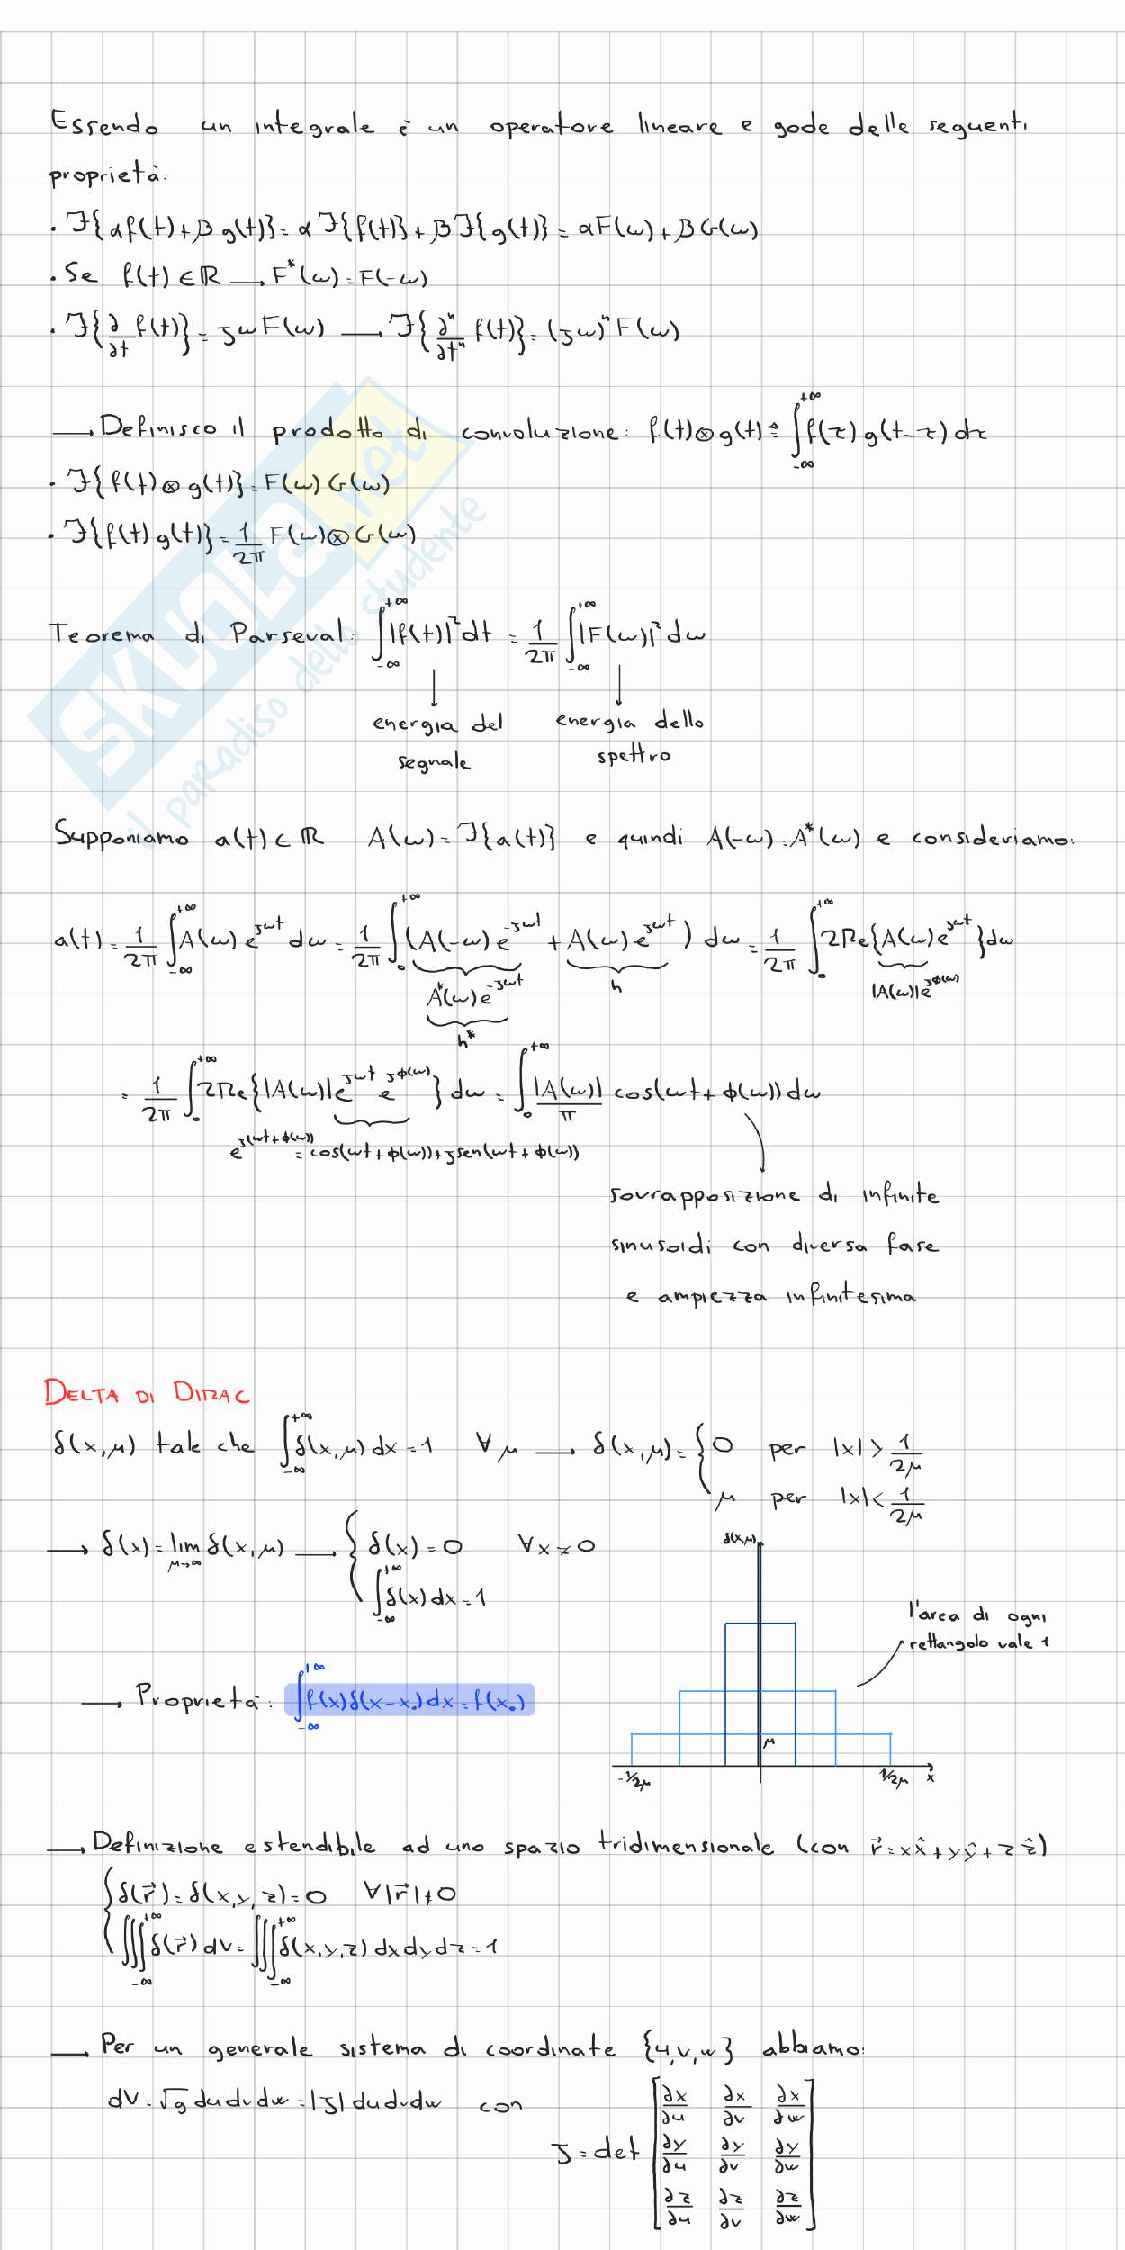 Essendo un integrale è un operatore lineare e gode delle seguenti
proprietà.
• ℱ{αf(t)+βg(t)}=αℱ{f(t)}+βℱ{g(t)}=αF(ω)+βG(ω)
• Se f(t)∈ℝ → F*(ω)=F(-ω)
• ℱ{∂/∂t f(t)}=jωF(ω) → ℱ{∂ⁿ/∂tⁿ f(t)}=(jω)ⁿF(ω)
→ Definisco il prodotto di convoluzione: f(t)⊗g(t)≜∫_{-∞}^{+∞} f(τ)g(t-τ)dτ
• ℱ{f(t)⊗g(t)}=F(ω)G(ω)
• ℱ{f(t)g(t)}=1/2π F(ω)⊗G(ω)
Teorema di Parseval: ∫_{-∞}^{+∞}|f(t)|²dt=1/2π ∫_{-∞}^{+∞}|F(ω)|²dω
energia del energia dello
segnale spettro
SKUOLA.net
il paradiso dello studente
Supponiamo a(t)∈ℝ A(ω)=ℱ{a(t)} e quindi A(-ω)=A*(ω) e consideriamo:
a(t)=1/2π ∫_{-∞}^{+∞} A(ω)e^{jωt}dω=1/2π ∫_{0}^{+∞}(A(-ω)e^{-jωt}+A(ω)e^{jωt})dω=1/2π ∫_{0}^{+∞}2Re{A(ω)e^{jωt}}dω
A*(ω)e^{-jωt} h |A(ω)|e^{jφ(ω)}
h*
=1/2π ∫_{0}^{+∞}2Re{|A(ω)|e^{jωt}e^{jφ(ω)}}dω=∫_{0}^{+∞}|A(ω)|/π cos(ωt+φ(ω))dω
e^{j(ωt+φ(ω))}=cos(ωt+φ(ω))+jsen(ωt+φ(ω))
sovrapposizione di infinite
sinusoidi con diversa fase
e ampiezza infinitesima
DELTA DI DIRAC
δ(x,μ) tale che ∫_{-∞}^{+∞}δ(x,μ)dx=1 ∀μ → δ(x,μ)={0 per |x|>1/2μ
μ per |x|<1/2μ
→ δ(x)=lim_{μ→∞}δ(x,μ) → {δ(x)=0 ∀x≠0
∫_{-∞}^{+∞}δ(x)dx=1
δ(x,μ)
l'area di ogni
rettangolo vale 1
→ Proprietà: ∫_{-∞}^{+∞}f(x)δ(x-x₀)dx=f(x₀)
μ
-1/2μ 1/2μ x
→ Definizione estendibile ad uno spazio tridimensionale (con r⃗=xx̂+yŷ+zẑ)
{δ(r⃗)=δ(x,y,z)=0 ∀|r⃗|≠0
∭_{-∞}^{+∞}δ(r⃗)dV=∭_{-∞}^{+∞}δ(x,y,z)dxdydz=1
→ Per un generale sistema di coordinate {u,v,w} abbiamo:
dV=√g dudvdw=|J|dudvdw con
J=det [∂x/∂u ∂x/∂v ∂x/∂w
∂y/∂u ∂y/∂v ∂y/∂w
∂z/∂u ∂z/∂v ∂z/∂w]